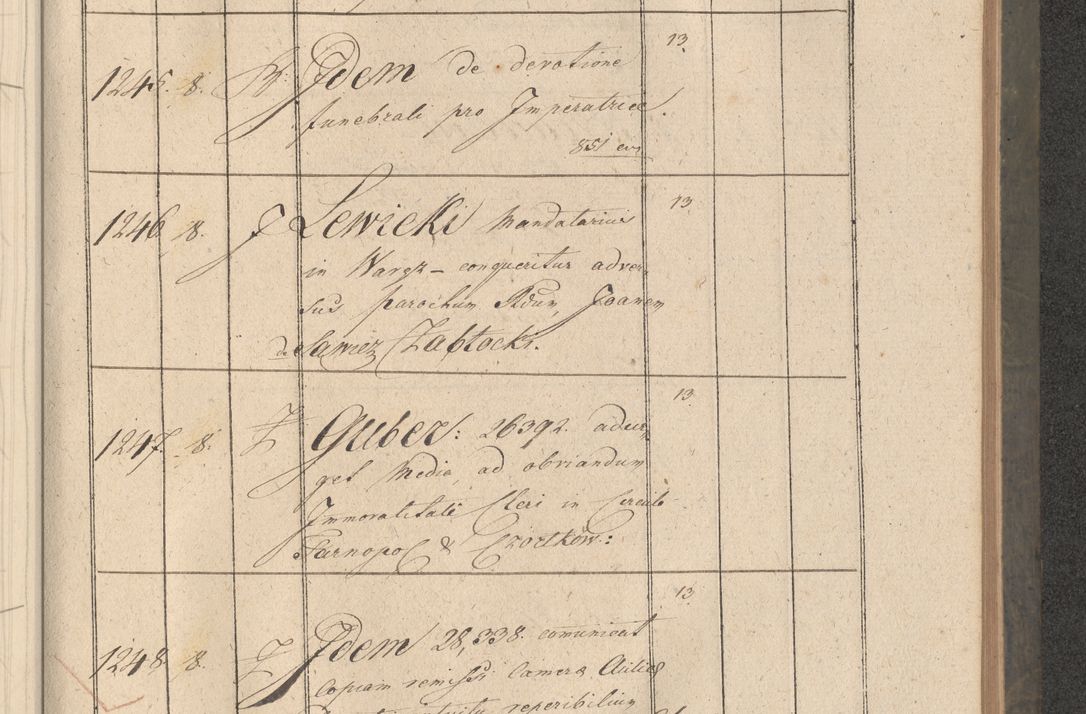 13
1245. 8. Idem de devotione
funebrali pro Imperatrice.
851
13
1246. 8. J Lewicki Mandatarius
in Waręz – conqueritur adver-
sus parochum Rdum Joanem
de Zabłocki.
13
1247. 8. Z Guber: 26392. adur-
get Media, ad obviandum
Immoralitati Cleri in Circulo
Tarnopol & Czortków:
13
1248 8. Z Idem 28,338. comunicat
Copiam Camerae Aulicae
reperibilium